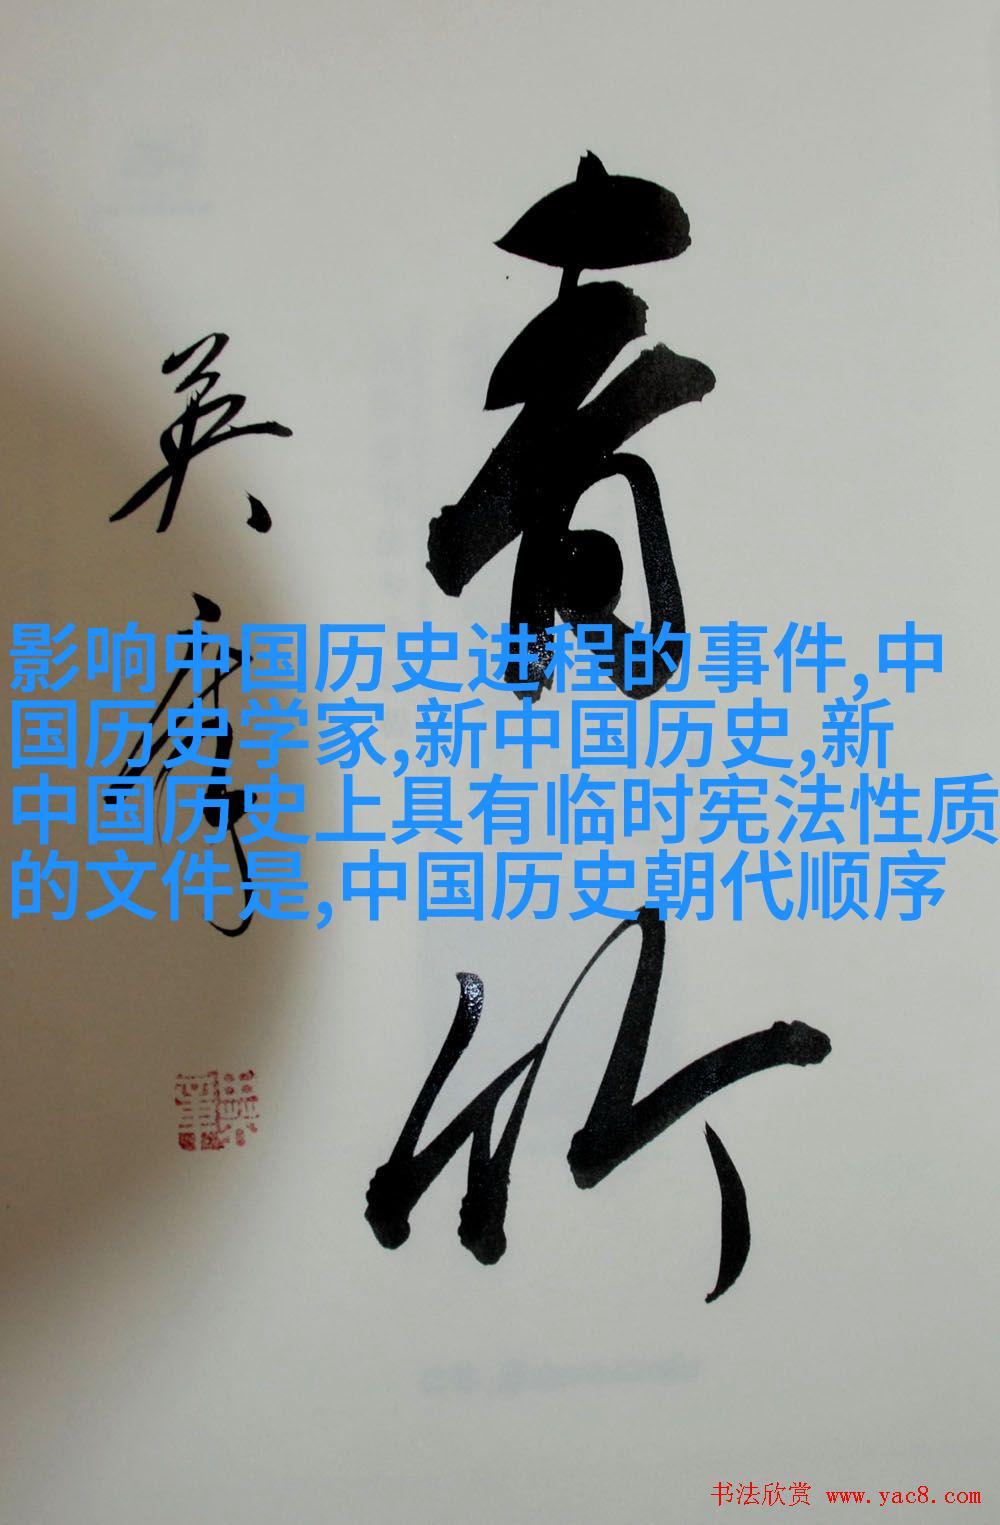 青竹
英
影响中国历史进程的事件,中
国历史学家,新中国历史,新
中国历史上具有临时宪法性质
的文件是,中国历史朝代顺序
书法欣赏 www.yac8.com